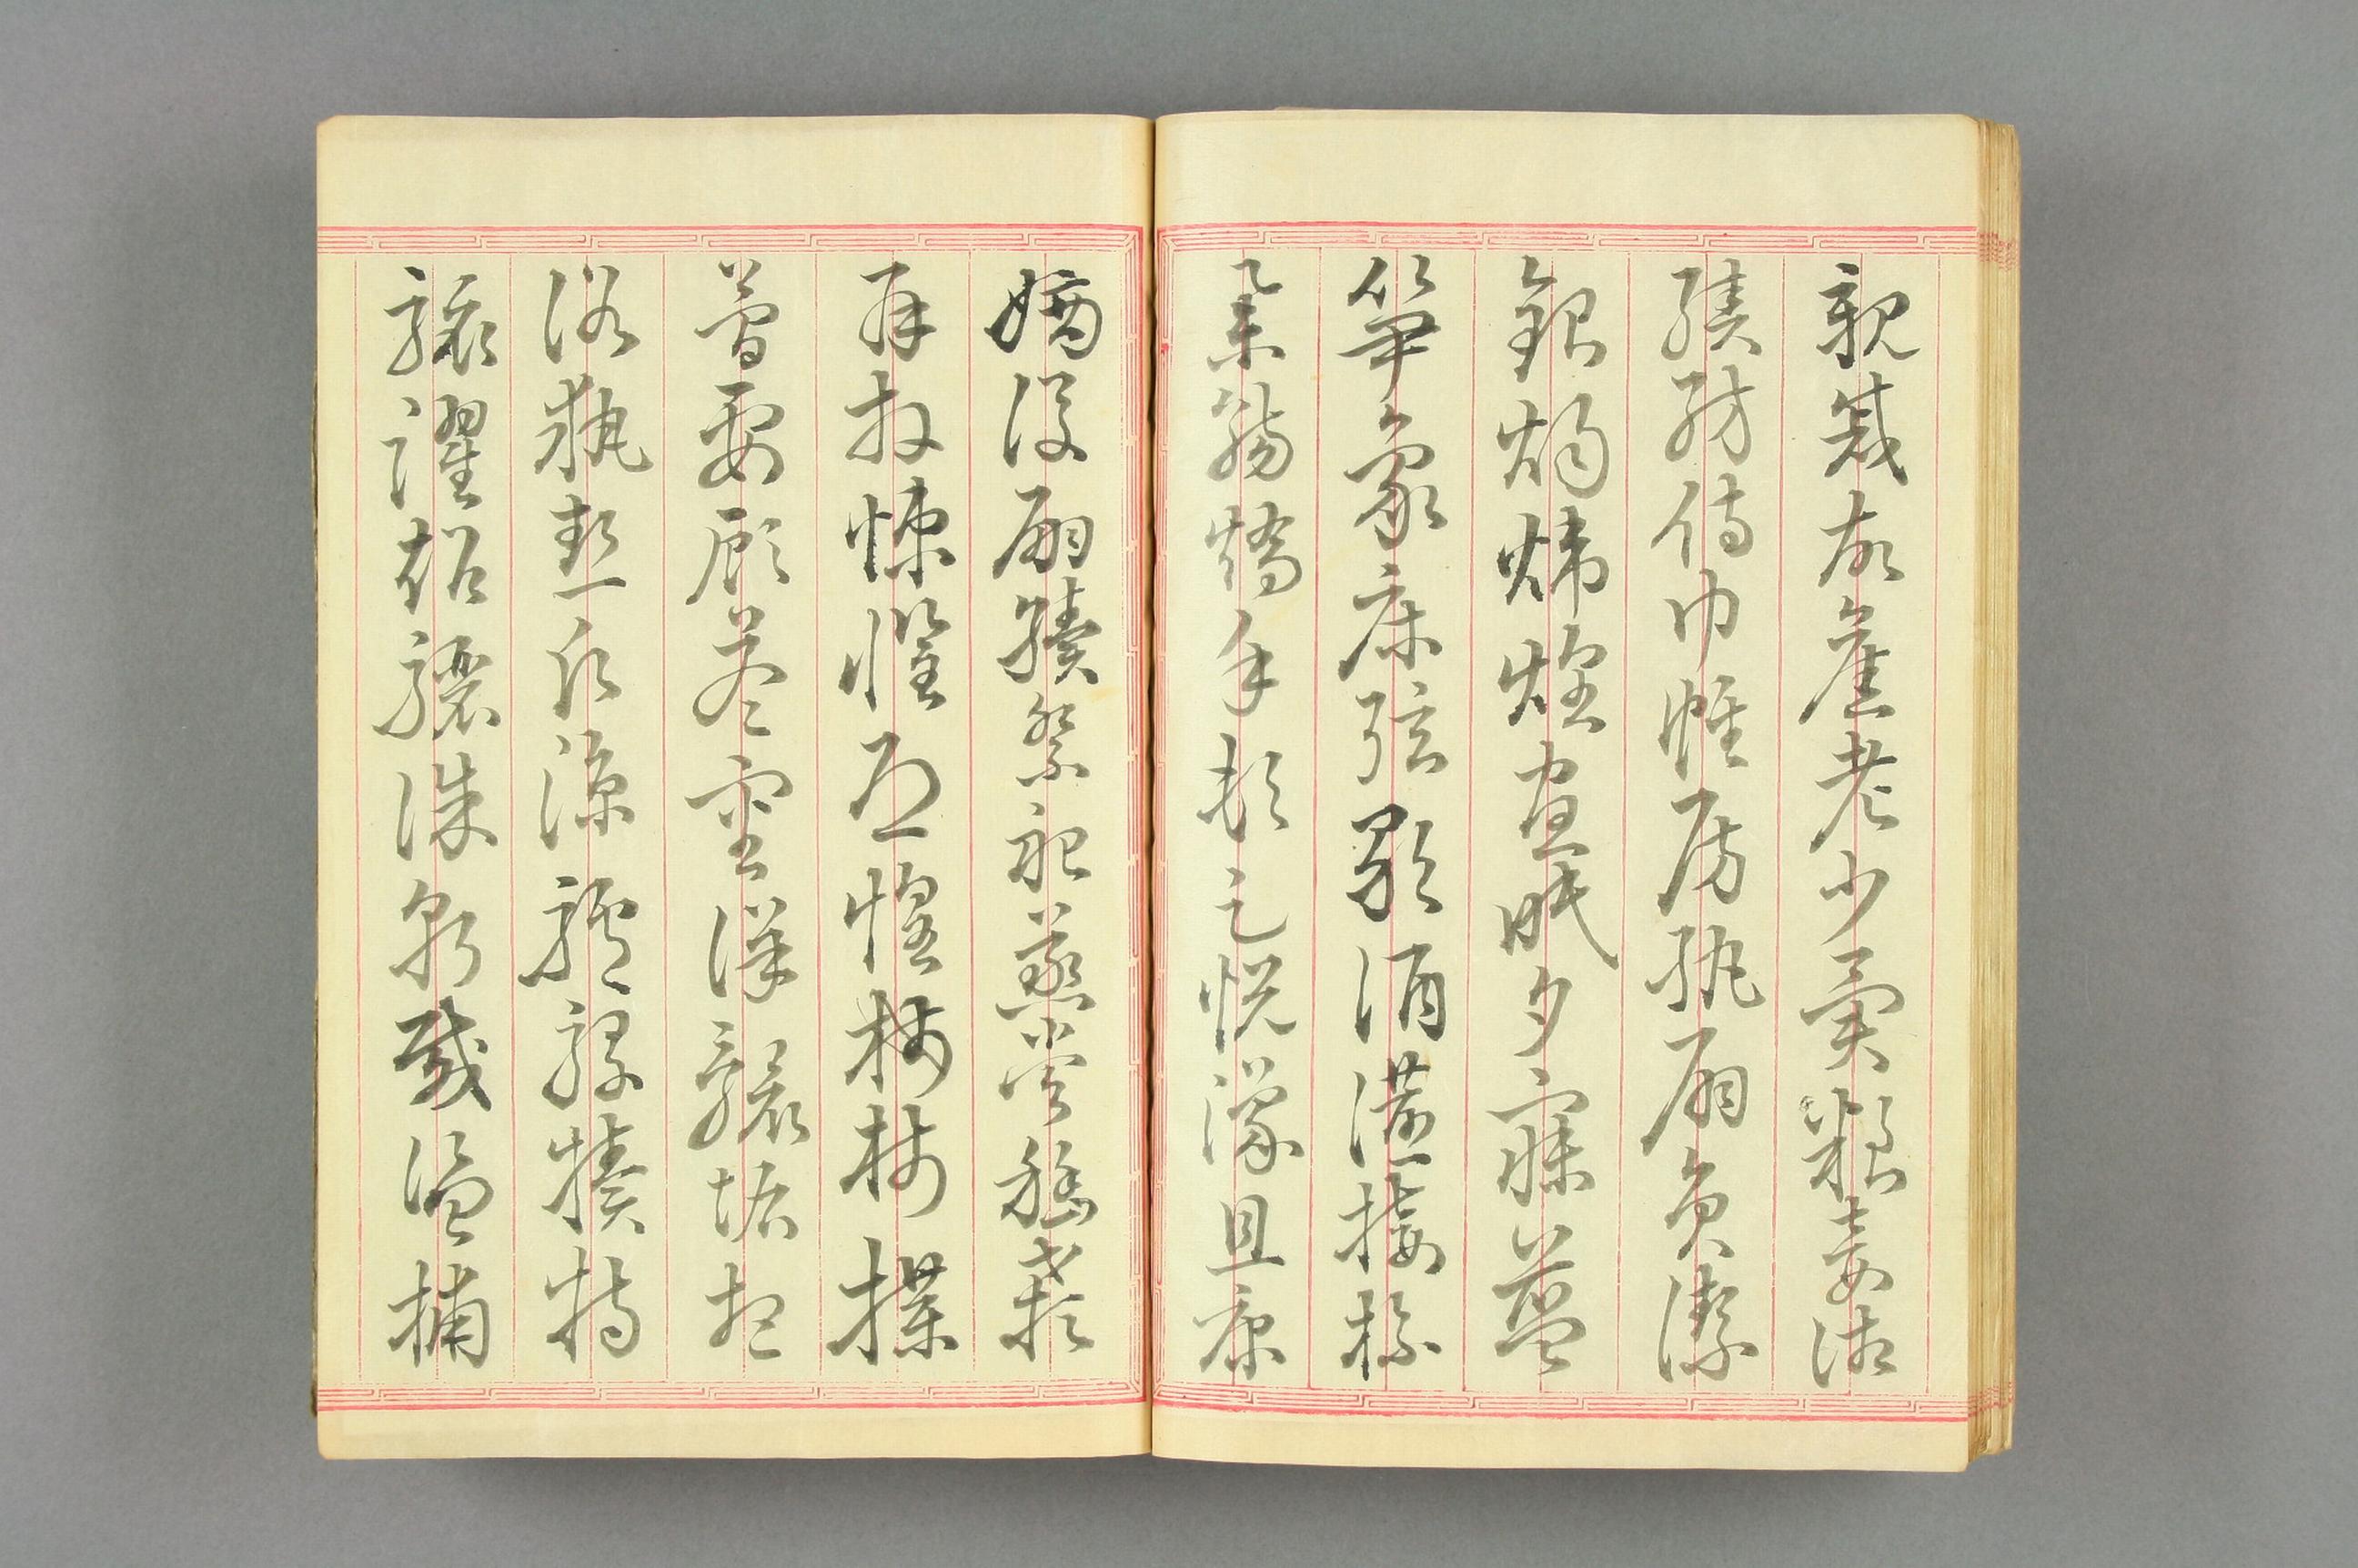 親戚故舊老少異糧妾御
績紡侍巾帷房紈扇圓潔
銀燭煒煌晝眠夕寐藍
筍象床弦歌酒讌接杯
舉觴矯手頓足悅豫且康
嫡後嗣續祭祀蒸嘗稽顙
再拜悚懼恐惶牋牒
簡要顧答審詳骸垢想
浴執熱願涼驢騾犢特
駭躍超驤誅斬賊盜捕